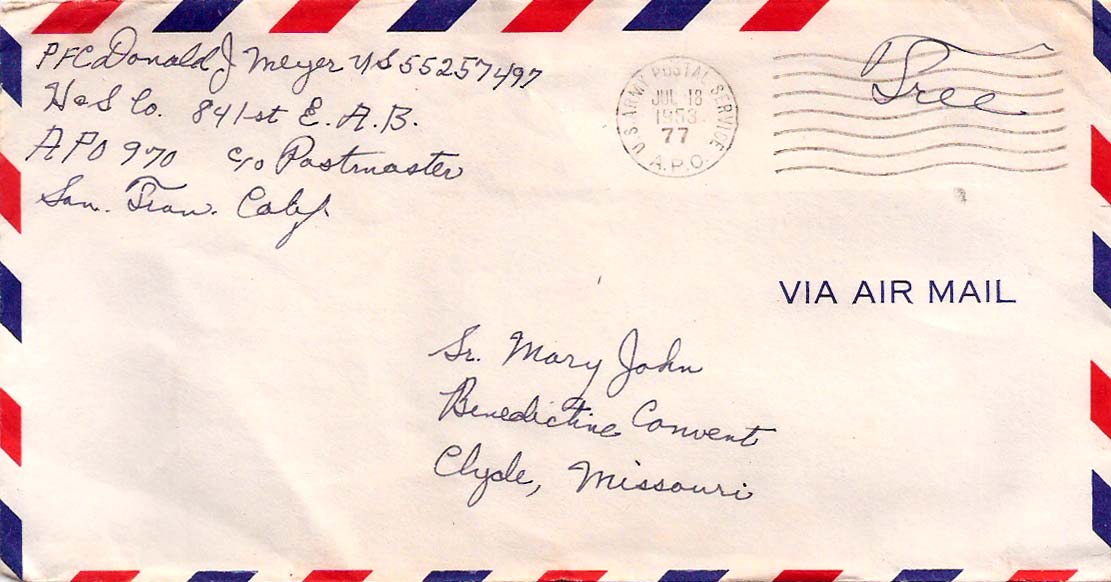 PFC Donald J Meyer US 55257497
H&S Co. 841st E. A. B.
APO 970 c/o Postmaster
San. Fran. Calif.
U.S. ARMY POSTAL SERVICE
JUL 18
1953
77
A.P.O.
Free
VIA AIR MAIL
Sr. Mary John
Benedictine Convent
Clyde, Missouri